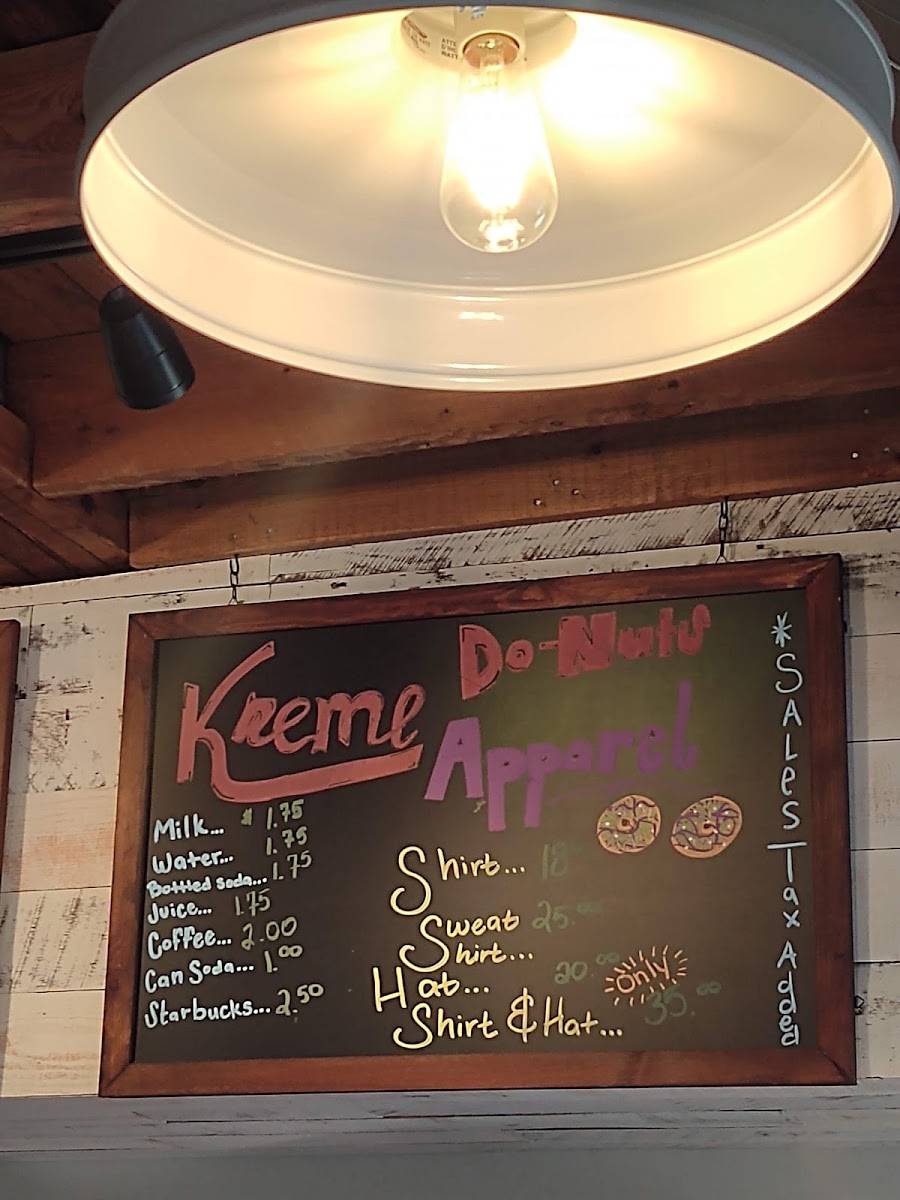 Kreme
Do-Nuts
Apparel
Milk... $ 1.75
Water... 1.75
Bottled soda... 1.75
Juice... 1.75
Coffee... 2.00
Can Soda... 1.00
Starbucks... 2.50
Shirt... 18
Sweat
Shirt... 25.00
Hat... 20.00
Only
Shirt & Hat... 35.00
*Sales Tax Added